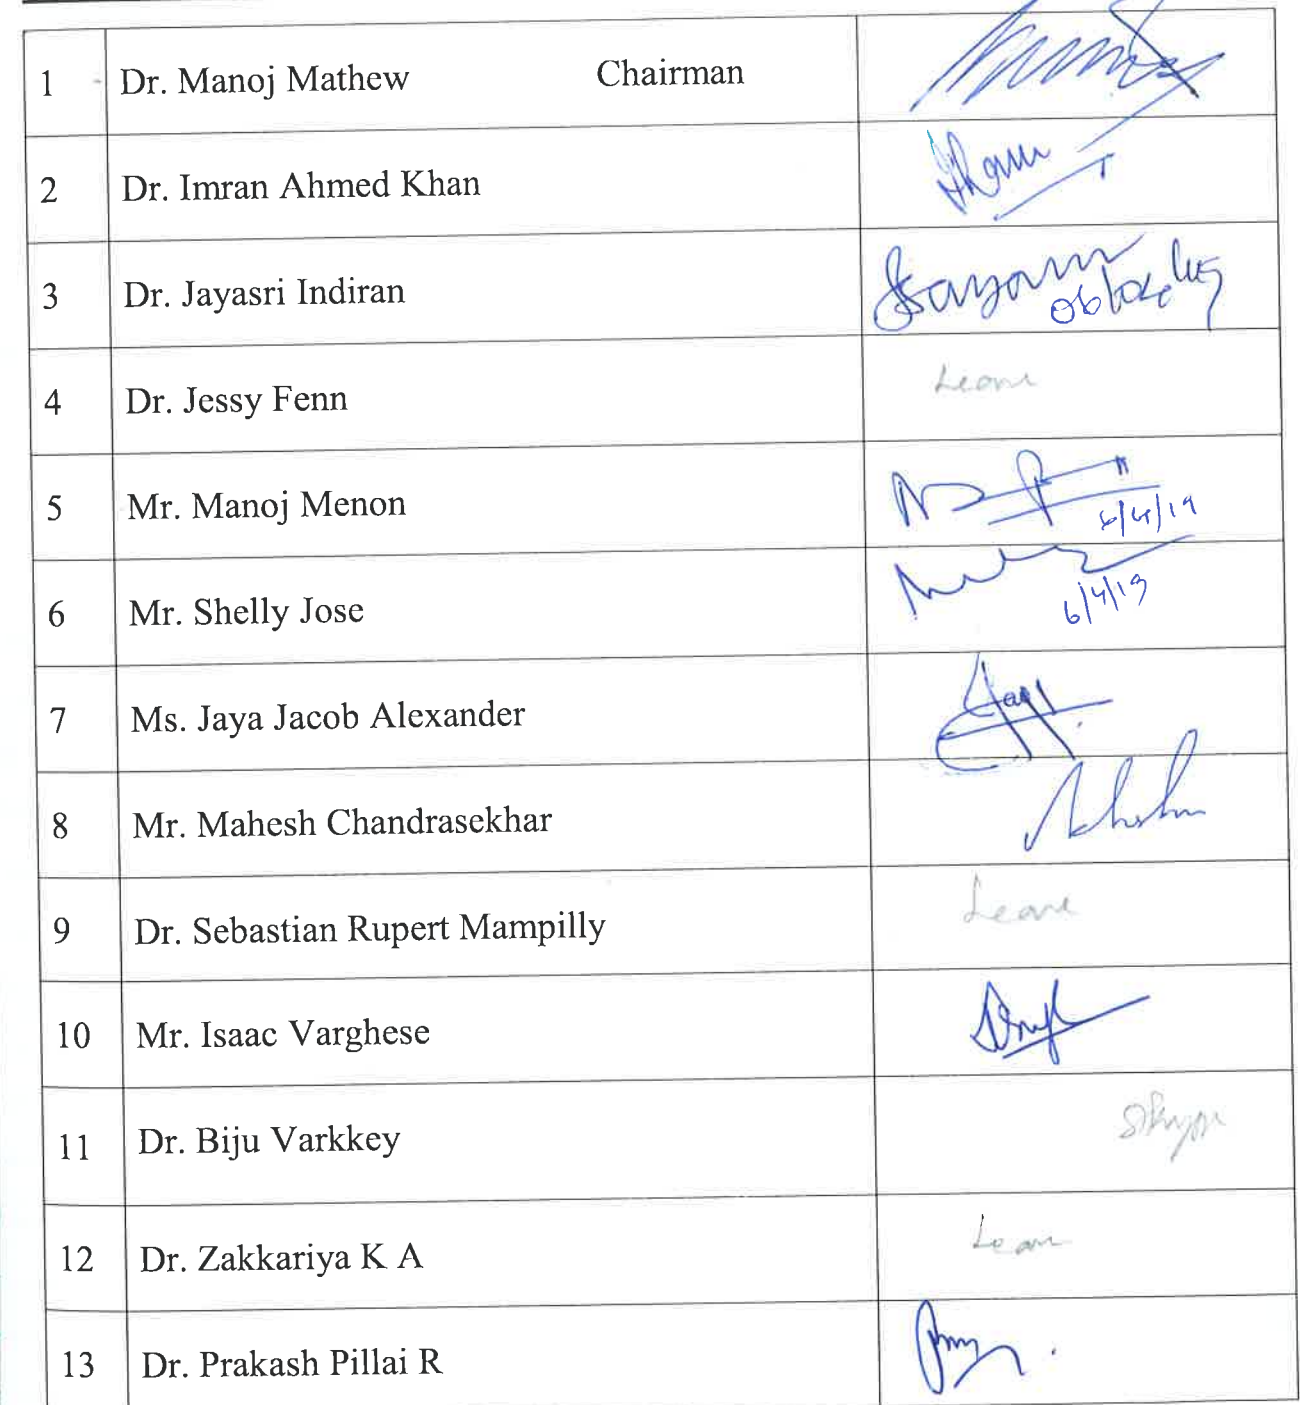 1 Dr. Manoj Mathew Chairman
2 Dr. Imran Ahmed Khan
3 Dr. Jayasri Indiran
4 Dr. Jessy Fenn Leave
5 Mr. Manoj Menon 6/4/19
6 Mr. Shelly Jose 6/4/19
7 Ms. Jaya Jacob Alexander
8 Mr. Mahesh Chandrasekhar
9 Dr. Sebastian Rupert Mampilly Leave
10 Mr. Isaac Varghese
11 Dr. Biju Varkkey Skype
12 Dr. Zakkariya K A Leave
13 Dr. Prakash Pillai R